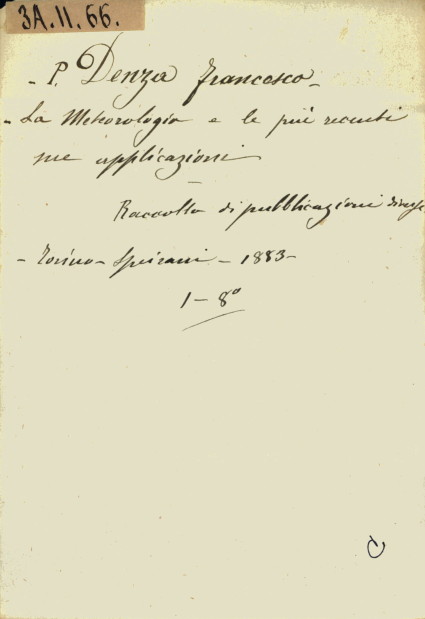 3A.II.66.
- P. Denza Francesco -
- La Meteorologia e le più recenti
sue applicazioni
—
Raccolta di pubblicazioni diverse
- Torino - Speirani - 1883 -
1 - 8°
C